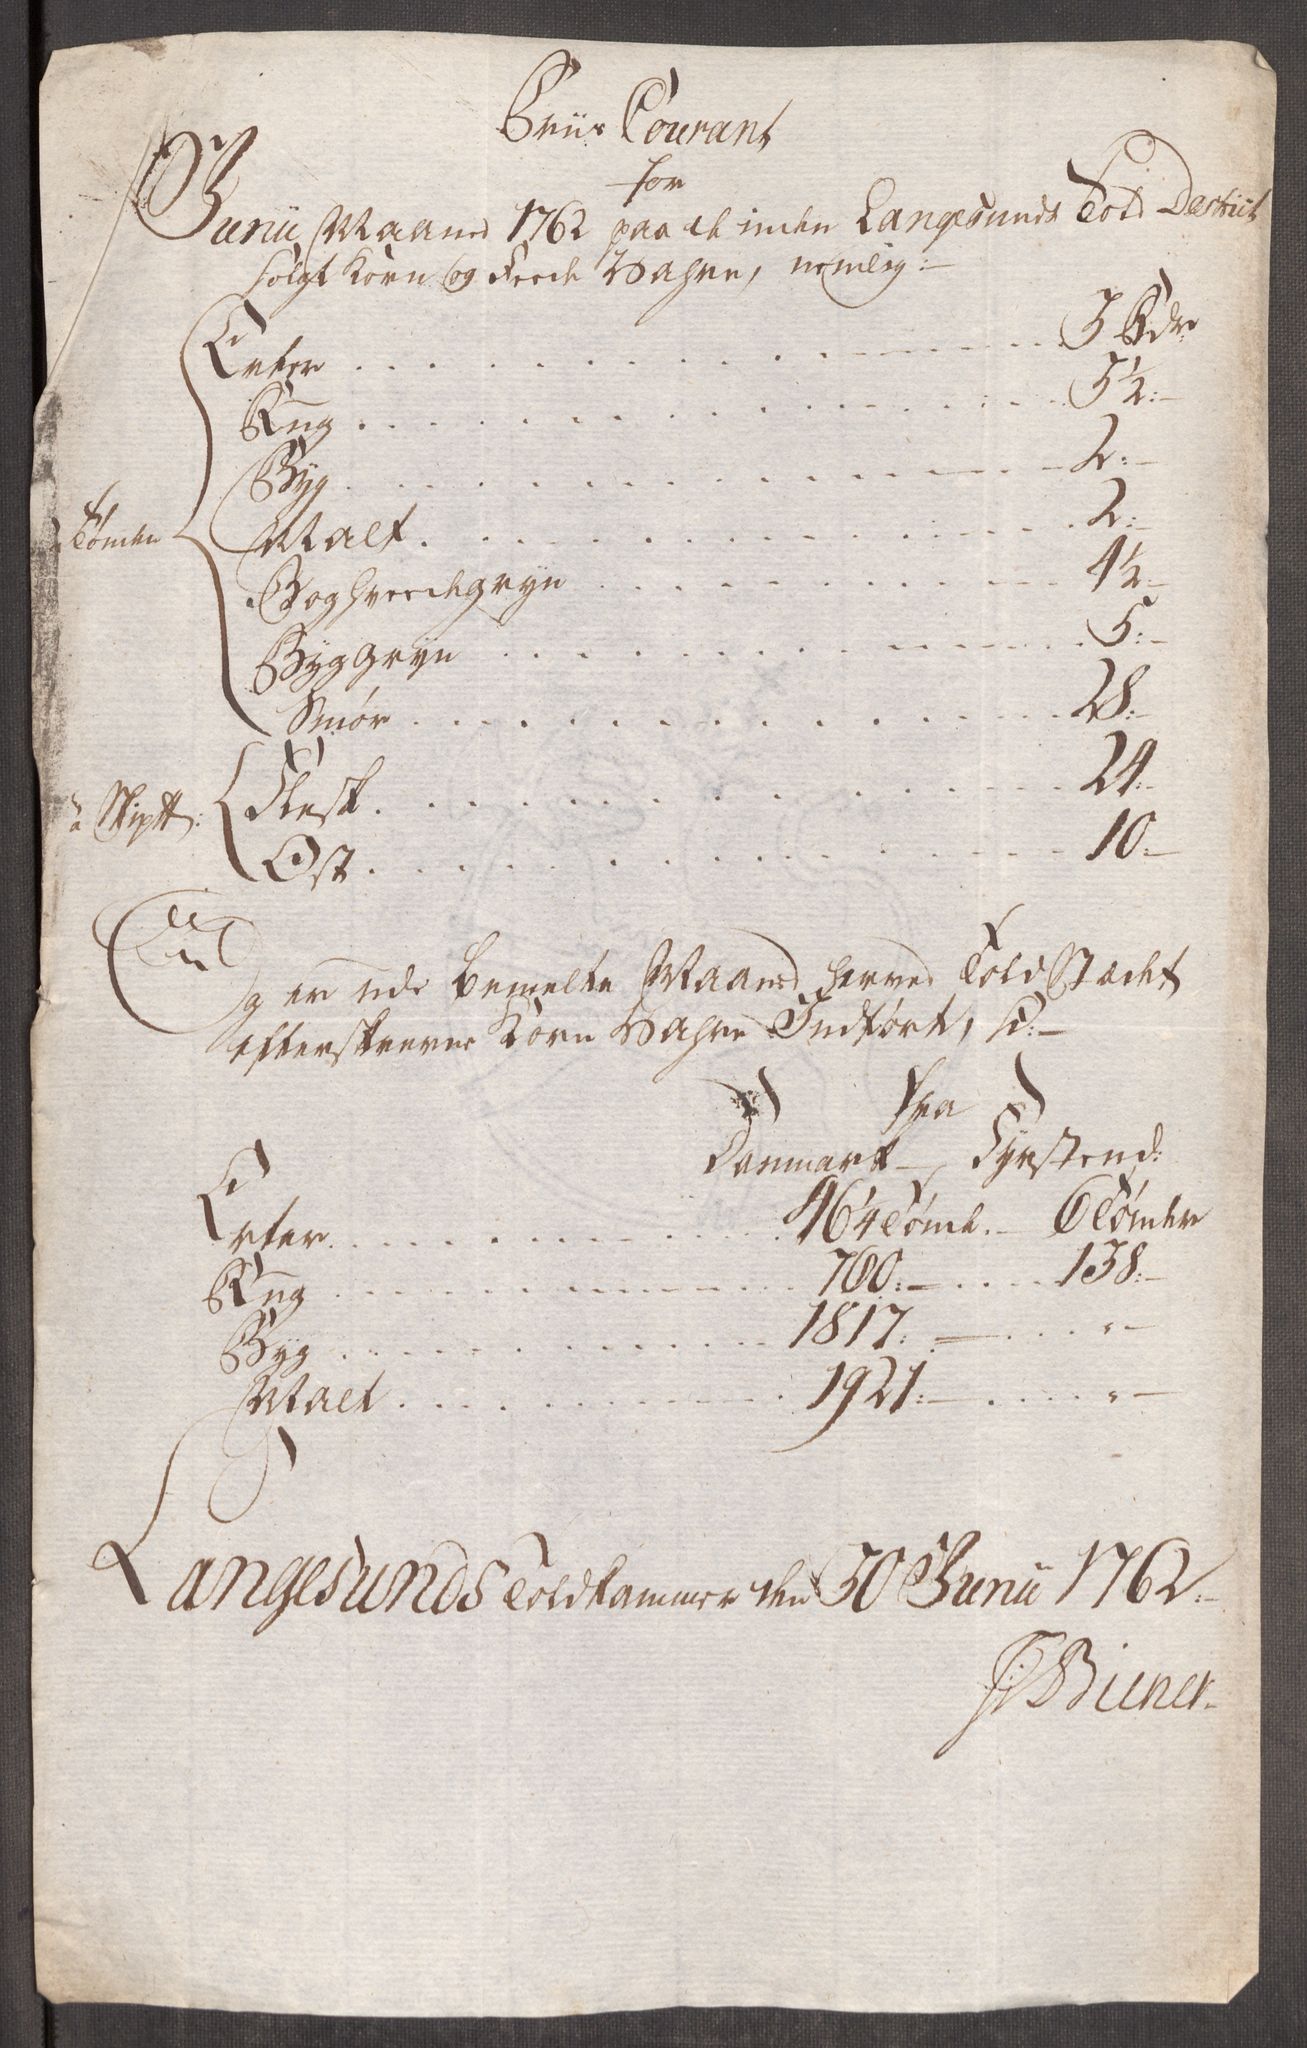 Priis Courant
for
Junii Maaned 1762 paa de inden Langesunds Told Destrict
solgt Korn og Feede Vahre, nemlig:
Erter . . . 3 Rdr
Rug . . . 3½:
Byg . . . 2:
Tønden Malt . . . 2:
Boghvedegryn . . . 4½
Byggryn . . . 5:
Smør . . . 28:
a Skip℔: Flesk . . . 24:
Ost . . . 10
Og er udi bemelte Maaned herved Toldstædet
efterskrevne Korn Vahre Indført, S:
fra
Danmark Fyrstend:
Erter . . . 46¼ Tønd. 6 Tønder
Rug . . . 700: . . . 138:
Byg . . . 1817: . . . "
Malt . . . 1921: . . . "
Langesunds Toldkammer den 30 Junii 1762
Biener